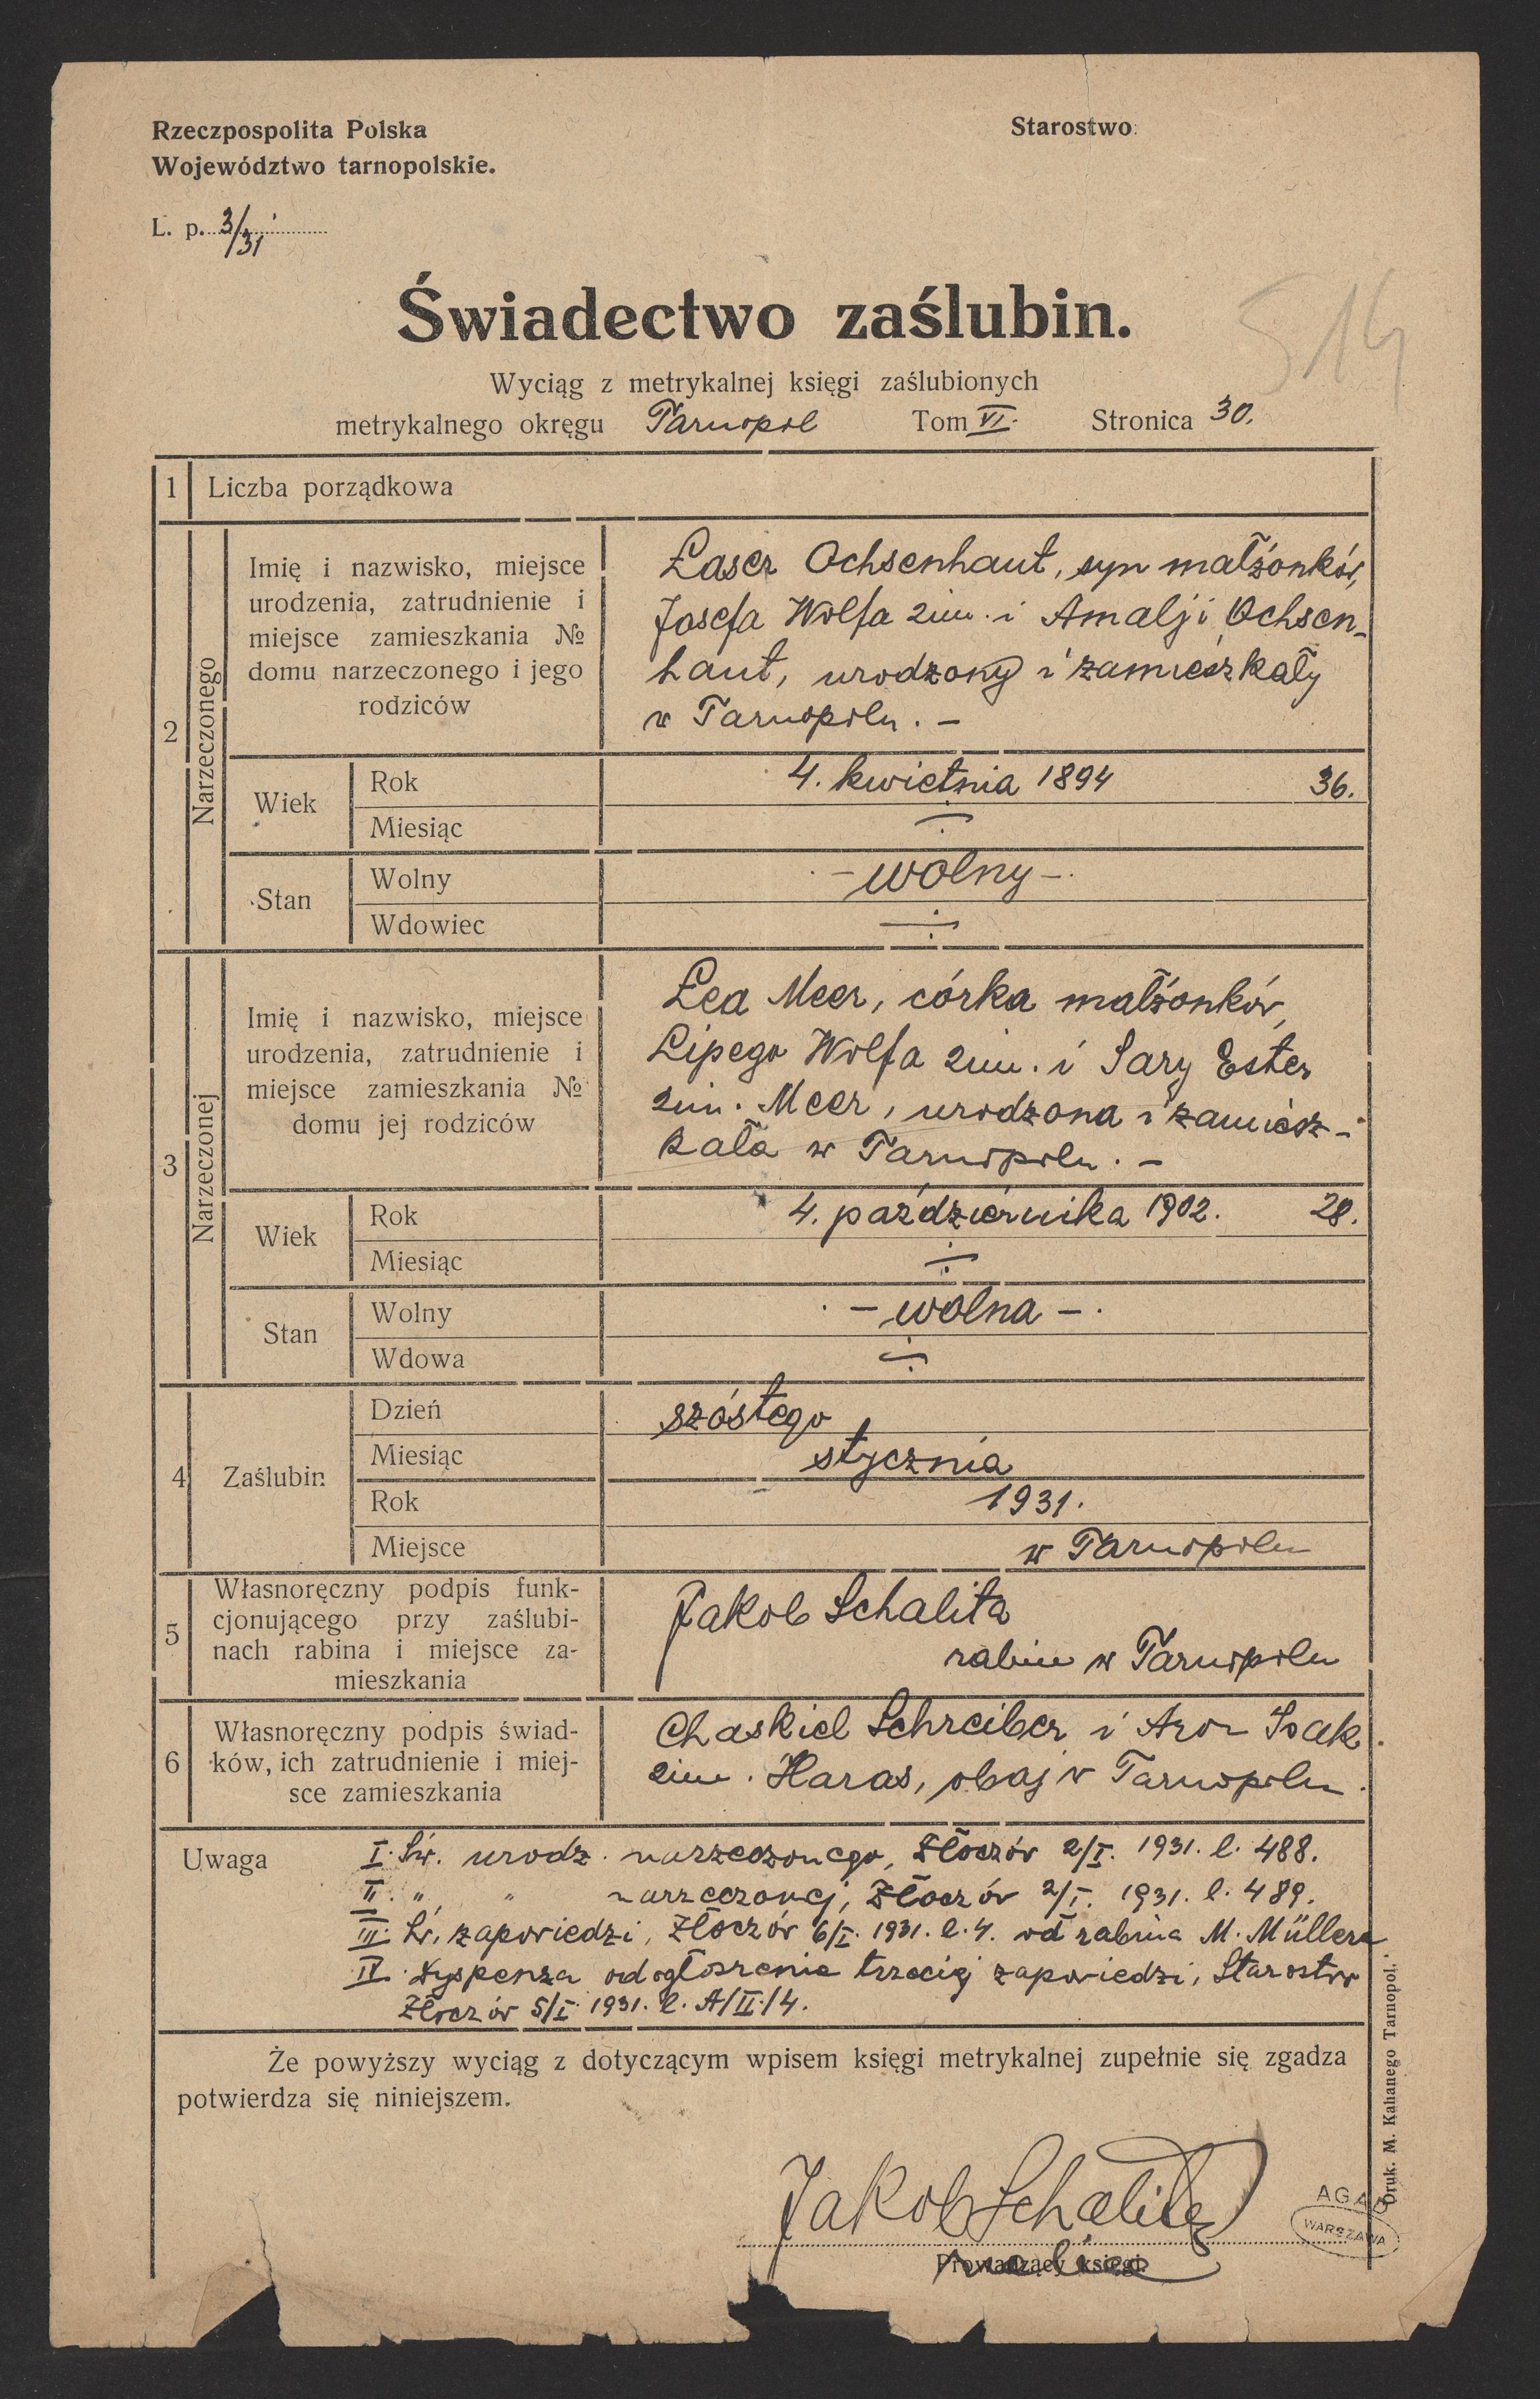 Rzeczpospolita Polska
Województwo tarnopolskie.
Starostwo
L. p. 3/31
Świadectwo zaślubin.
514
Wyciąg z metrykalnej księgi zaślubionych
metrykalnego okręgu Tarnopol Tom VI. Stronica 30.
1 Liczba porządkowa
2 Narzeczonego
Imię i nazwisko, miejsce
urodzenia, zatrudnienie i
miejsce zamieszkania №
domu narzeczonego i jego
rodziców
Laser Ochsenhaut, syn małżonków,
Josefa Wolfa 2im. i Amalji Ochsen-
haut, urodzony i zamieszkały
w Tarnopolu. —
Wiek
Rok 4. kwietnia 1894 36.
Miesiąc
Stan
Wolny — wolny —
Wdowiec
3 Narzeczonej
Imię i nazwisko, miejsce
urodzenia, zatrudnienie i
miejsce zamieszkania №
domu jej rodziców
Lea Meer, córka małżonków,
Lipego Wolfa 2im. i Sary Ester
2im. Meer, urodzona i zamiesz-
kała w Tarnopolu. —
Wiek
Rok 4. październnika 1902. 28.
Miesiąc
Stan
Wolny — wolna —
Wdowa
4 Zaślubin
Dzień szóstego
Miesiąc stycznia
Rok 1931.
Miejsce w Tarnopolu
5 Własnoręczny podpis funk-
cjonującego przy zaślubi-
nach rabina i miejsce za-
mieszkania
Jakob Schalita
rabin w Tarnopolu
6 Własnoręczny podpis świad-
ków, ich zatrudnienie i miej-
sce zamieszkania
Chaskiel Schreiber i Aron Isak
2im. Haras, obaj w Tarnopolu.
Uwaga I. Św. urodz. narzeczonego, Złoczów 2/I. 1931. l. 488.
II. " " narzeczonej, Złoczów 2/I. 1931. l. 489.
III. Św. zapowiedzi, Złoczów 6/I. 1931. l. 4. od rabina M. Müllera
IV. Dyspenza od ogłoszenia trzeciej zapowiedzi, Starostwo
Złoczów 5/I. 1931. l. A/II/4.
Że powyższy wyciąg z dotyczącym wpisem księgi metrykalnej zupełnie się zgadza
potwierdza się niniejszem.
Jakob Schalita
Prowadzący księgi
rabin
AGAD
WARSZAWA
Druk. M. Kahanego Tarnopol.